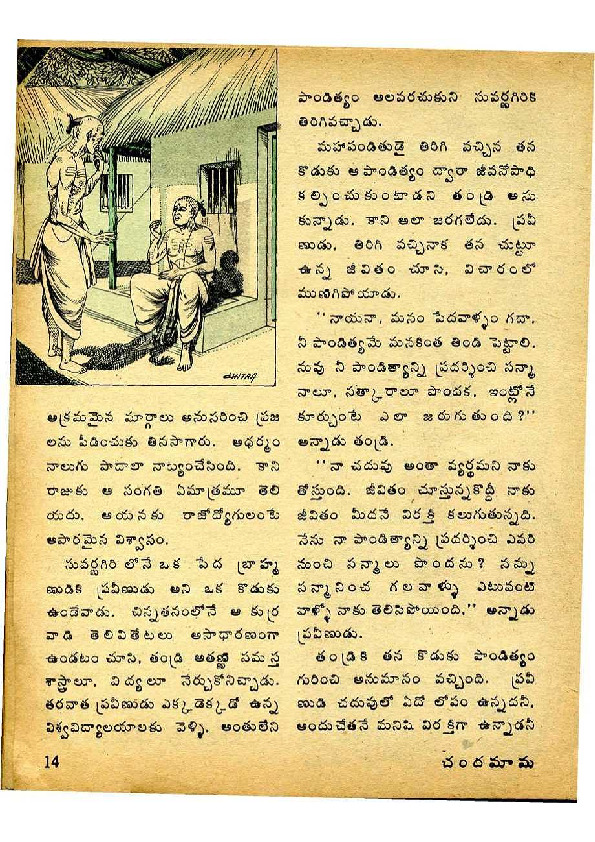 CHITRA
అక్రమమైన మార్గాలు అనుసరించి ప్రజ
లను పీడించుకు తినసాగారు. అధర్మం
నాలుగు పాదాలా నాట్యంచేసింది. కాని
రాజుకు ఆ సంగతి ఏమాత్రమూ తెలి
యదు. ఆయనకు రాజోద్యోగులంటే
అపారమైన విశ్వాసం.
సువర్ణగిరి లోనే ఒక పేద బ్రాహ్మ
ణుడికి ప్రవీణుడు అని ఒక కొడుకు
ఉండేవాడు. చిన్నతనంలోనే ఆ కుర్ర
వాడి తెలివితేటలు అసాధారణంగా
ఉండటం చూసి, తండ్రి అతణ్ణి సమస్త
శాస్త్రాలూ, విద్యలూ నేర్చుకోనిచ్చాడు.
తరవాత ప్రవీణుడు ఎక్కడెక్కడో ఉన్న
విశ్వవిద్యాలయాలకు వెళ్ళి, అంతులేని
పాండిత్యం అలవరచుకుని సువర్ణగిరికి
తిరిగివచ్చాడు.
మహాపండితుడై తిరిగి వచ్చిన తన
కొడుకు ఆ పాండిత్యం ద్వారా జీవనోపాధి
కల్పించుకుంటాడని తండ్రి అను
కున్నాడు. కాని అలా జరగలేదు. ప్రవీ
ణుడు, తిరిగి వచ్చినాక తన చుట్టూ
ఉన్న జీవితం చూసి, విచారంలో
మునిగిపోయాడు.
"నాయనా, మనం పేదవాళ్ళం గదా.
నీ పాండిత్యమే మనకింత తిండి పెట్టాలి.
నువు నీ పాండిత్యాన్ని ప్రదర్శించి సన్మా
నాలూ, సత్కారాలూ పొందక, ఇంట్లోనే
కూర్చుంటే ఎలా జరుగుతుంది?"
అన్నాడు తండ్రి.
"నా చదువు అంతా వ్యర్థమని నాకు
తోస్తుంది. జీవితం చూస్తున్నకొద్దీ నాకు
జీవితం మీదనే విరక్తి కలుగుతున్నది.
నేను నా పాండిత్యాన్ని ప్రదర్శించి ఎవరి
నుంచి సన్మాలు పొందను? నన్ను
సన్మానించ గలవాళ్ళు ఎటువంటి
వాళ్ళో నాకు తెలిసిపోయింది," అన్నాడు
ప్రవీణుడు.
తండ్రికి తన కొడుకు పాండిత్యం
గురించి అనుమానం వచ్చింది. ప్రవీ
ణుడి చదువులో ఏదో లోపం ఉన్నదనీ,
అందుచేతనే మనిషి విరక్తిగా ఉన్నాడనీ
14
చందమామ